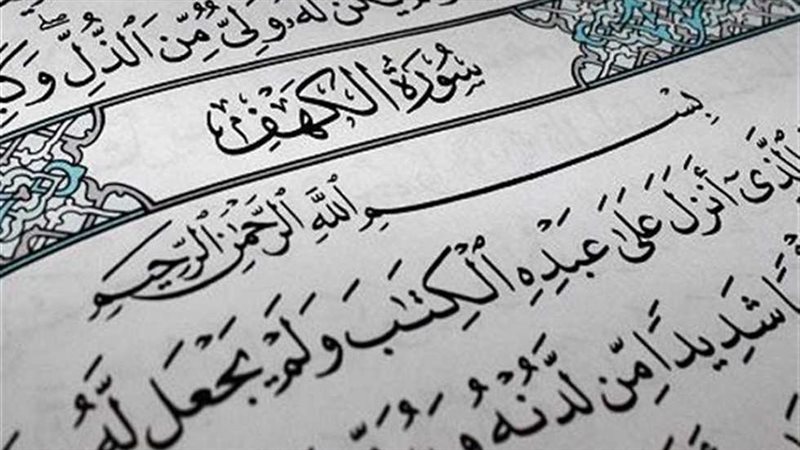 لَّهُۥ وَلِيٌّ مِّنَ ٱلذُّلِّ ۖ وَ
سُورَةُ الكَهْفِ
بِسْمِ ٱللَّهِ ٱلرَّحْمَٰنِ ٱلرَّحِيمِ
ٱلَّذِىٓ أَنزَلَ عَلَىٰ عَبْدِهِ ٱلْكِتَٰبَ وَلَمْ يَجْعَل لَّهُۥ
شَدِيدًا مِّن لَّدُنْهُ وَ